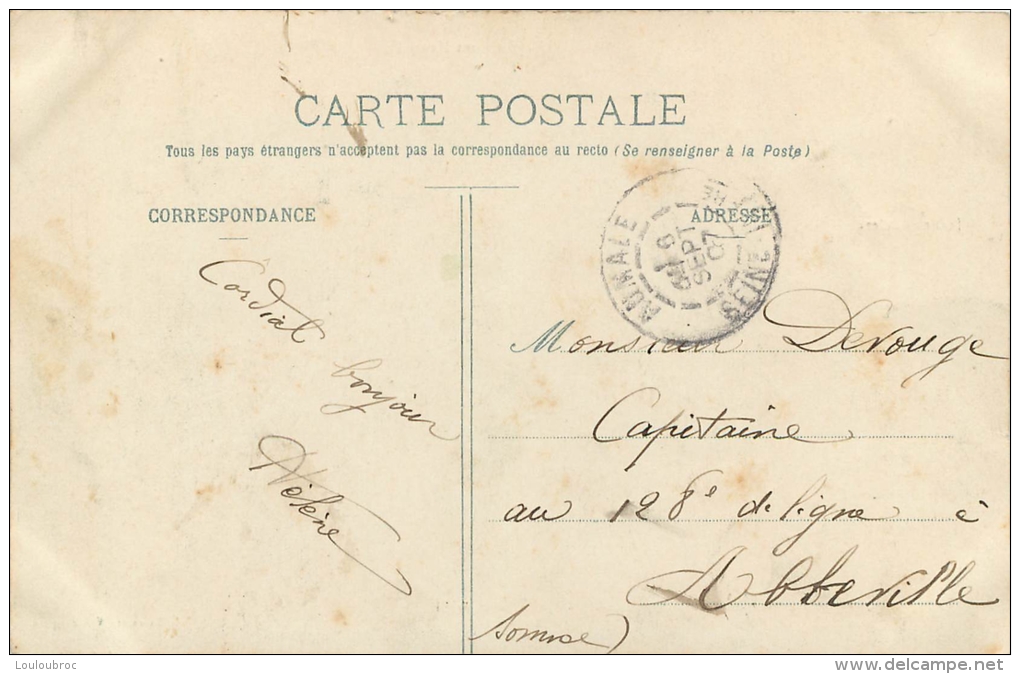 CARTE POSTALE
Tous les pays étrangers n'acceptent pas la correspondance au recto (Se renseigner à la Poste)
CORRESPONDANCE
ADRESSE
AUMALE
SEPT
07
SEINE
Cordial
bonjour
Hélène
Monsieur Devouge
Capitaine
au 128e de ligne à
Abbeville
Somme)
Louloubroc
www.delcampe.net